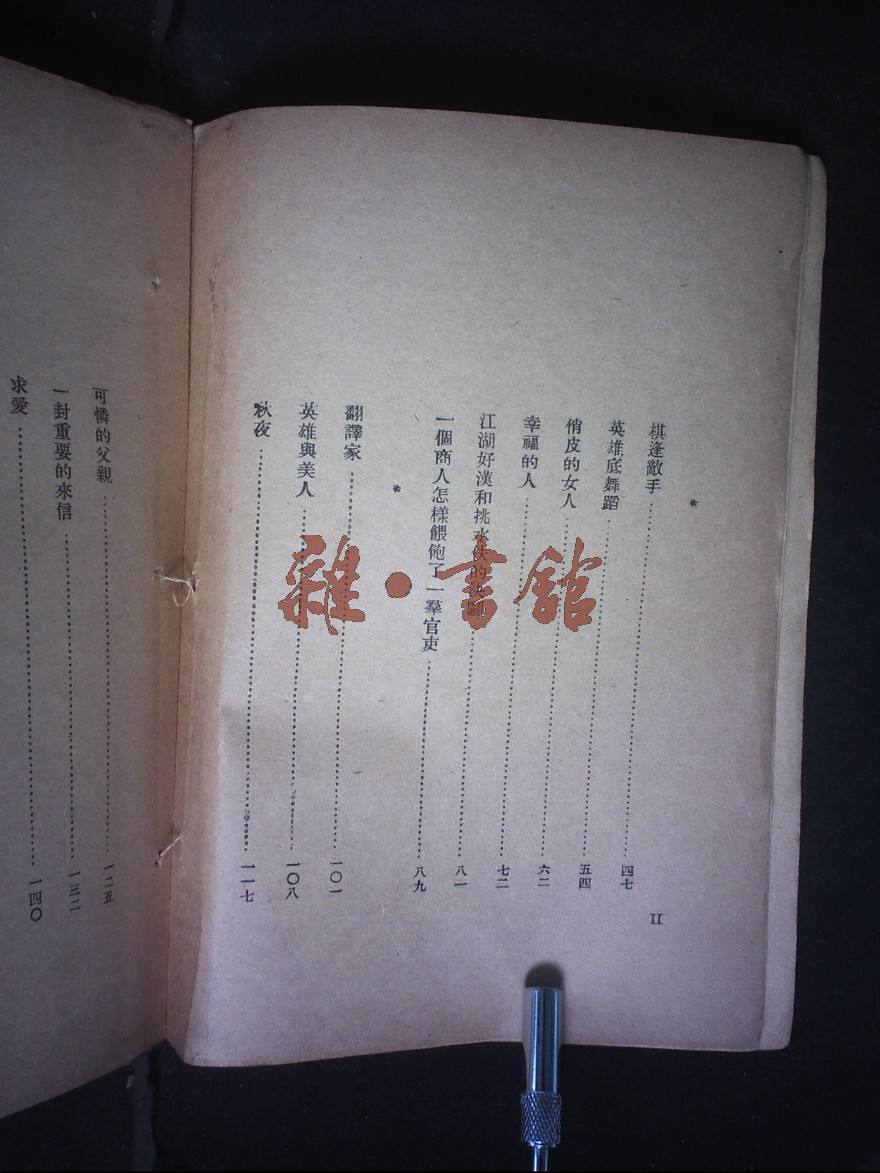 II
*
棋逢敵手……四七
英雄底舞蹈……五四
俏皮的女人……六二
幸福的人……七二
江湖好漢和挑水伕的……八一
一個商人怎樣餵飽了一羣官吏……八九
*
翻譯家……一〇一
英雄與美人……一〇八
秋夜……一一七
可憐的父親……一二五
一封重要的來信……一三二
求愛……一四〇
雜·書館